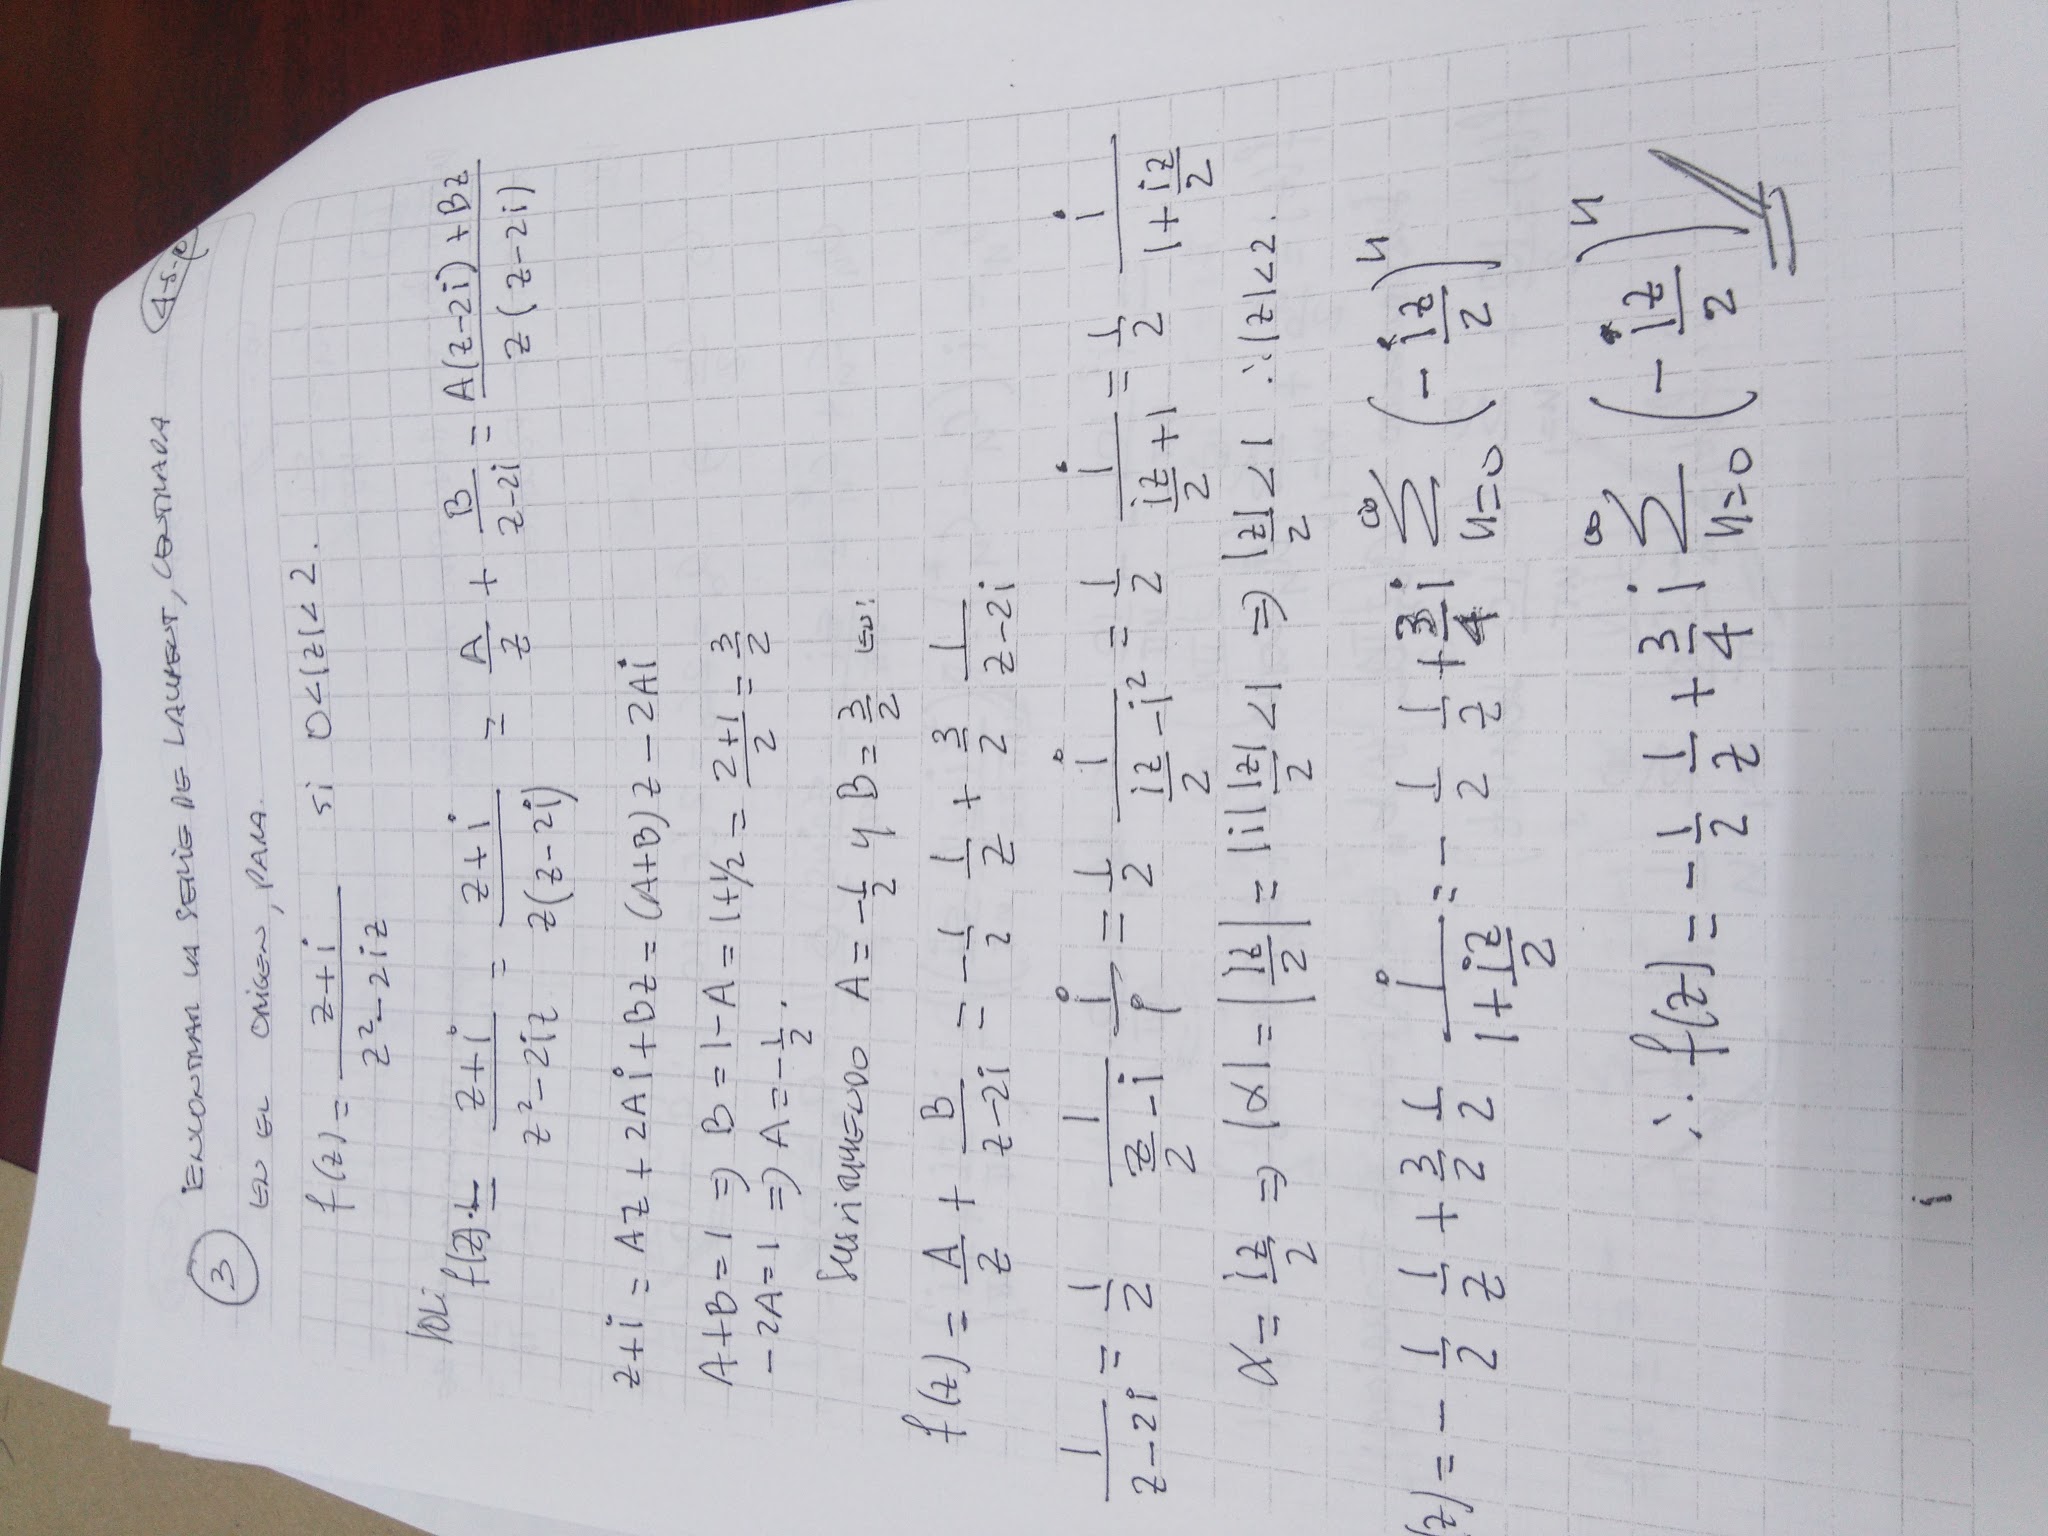 4-5-p
3 ENCONTRAR LA SERIE DE LAURENT, CENTRADA
EN EL ORIGEN, PARA.
f(z) = (z+i)/(z²-2iz) si 0<|z|<2.
SOL:
f(z) = (z+i)/(z²-2iz) = (z+i)/(z(z-2i)) = A/z + B/(z-2i) = (A(z-2i)+Bz)/(z(z-2i))
z+i = Az + 2Ai + Bz = (A+B)z - 2Ai
A+B=1 ⇒ B = 1-A = 1+1/2 = (2+1)/2 = 3/2
-2A=1 ⇒ A = -1/2.
SUSTITUYENDO A = -1/2 y B = 3/2 EN:
f(z) = A/z + B/(z-2i) = -1/2 1/z + 3/2 1/(z-2i)
1/(z-2i) = 1/2 1/(z/2 - i) i/i = 1/2 i/(iz/2 - i²) = 1/2 i/(iz/2 + 1) = 1/2 i/(1 + iz/2)
α = iz/2 ⇒ |α| = |iz/2| = |i| |z|/2 < 1 ⇒ |z|/2 < 1 ∴ |z|<2.
(z) = - 1/2 1/z + 3/2 1/2 i/(1 + iz/2) = - 1/2 1/z + 3/4 i ∑_{n=0}^{∞} (- iz/2)^n
∴ f(z) = - 1/2 1/z + 3/4 i ∑_{n=0}^{∞} (- iz/2)^n
i